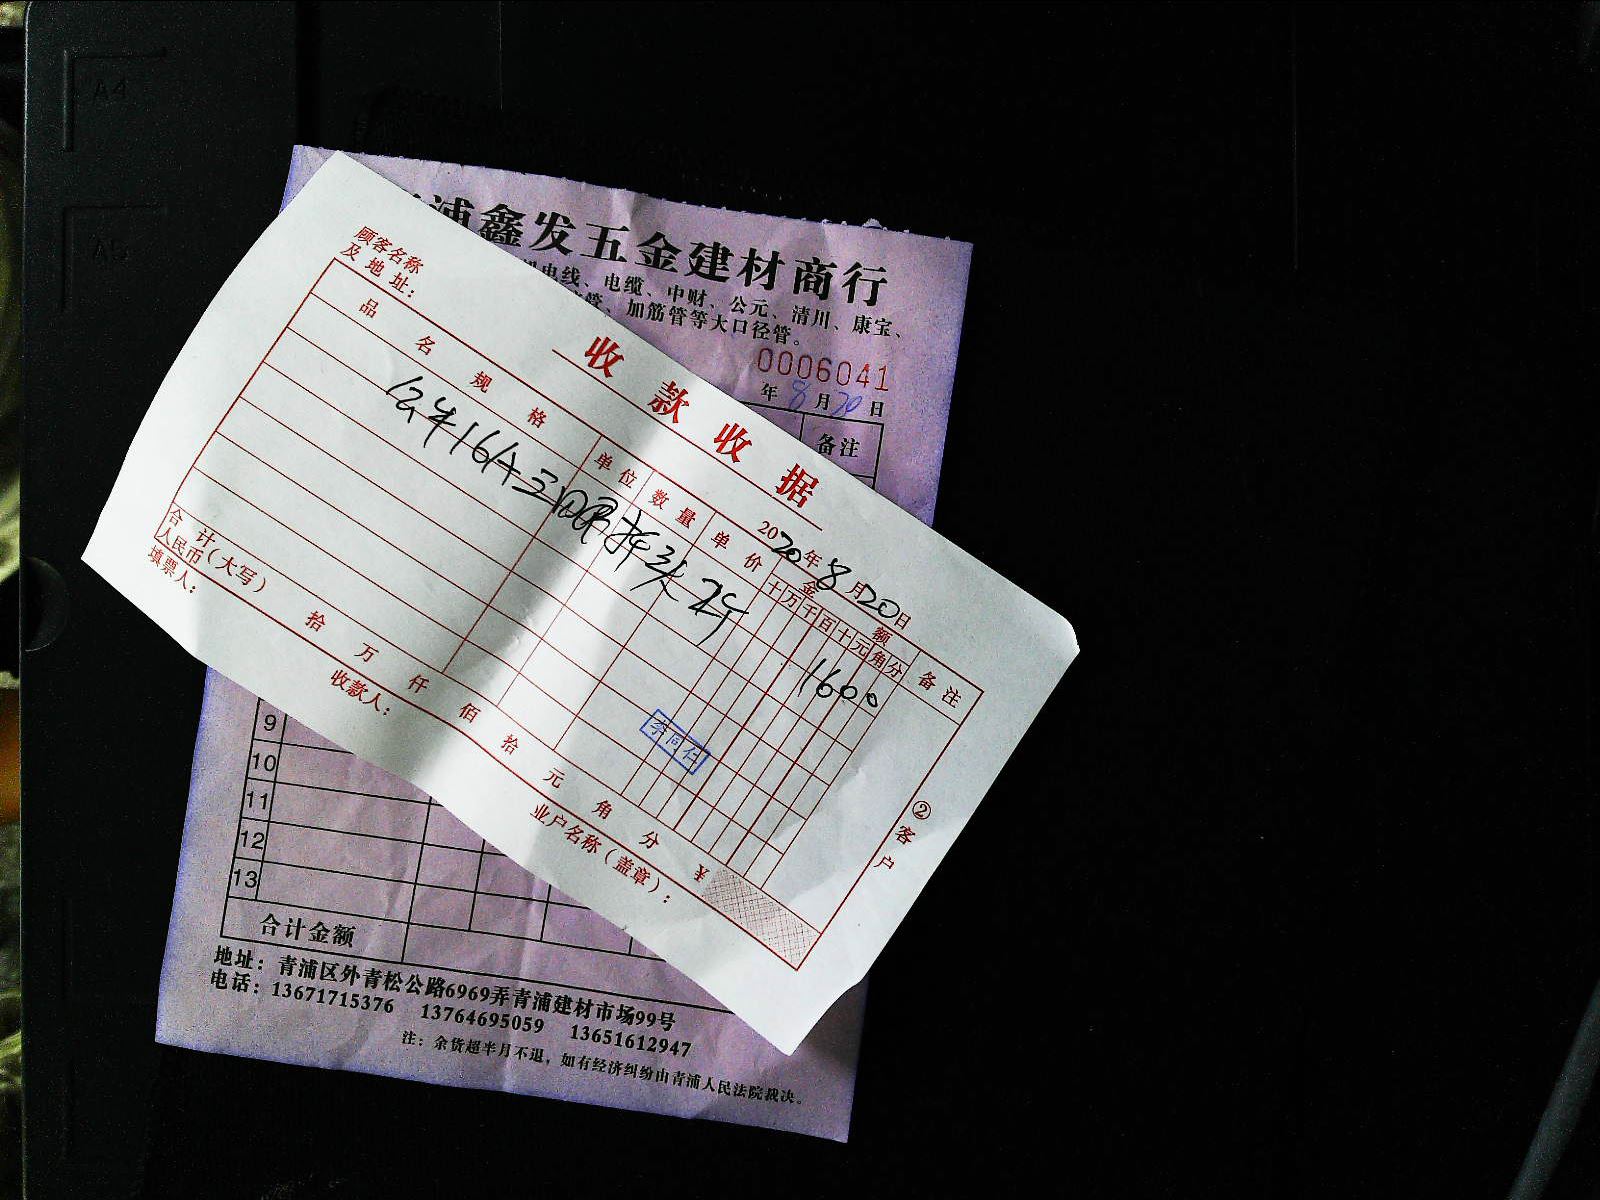 A4
A5
浦鑫发五金建材商行
电线、电缆、中财、公元、清川、康宝、
管、加筋管等大口径管。
0006041
年8月20日
备注
顾客名称
及地址：
收款收据
2020年8月20日
品名规格 单位 数量 单价 金额 备注
十万千百十元角分
公牛16A三 插头 2个 1600
李同仕
合计
人民币（大写） 拾 万 仟 佰 拾 元 角 分 ¥
填票人： 收款人： 业户名称（盖章）：
②客户
9
10
11
12
13
合计金额
地址：青浦区外青松公路6969弄青浦建材市场99号
电话：13671715376 13764695059 13651612947
注：余货超半月不退，如有经济纠纷由青浦人民法院裁决。